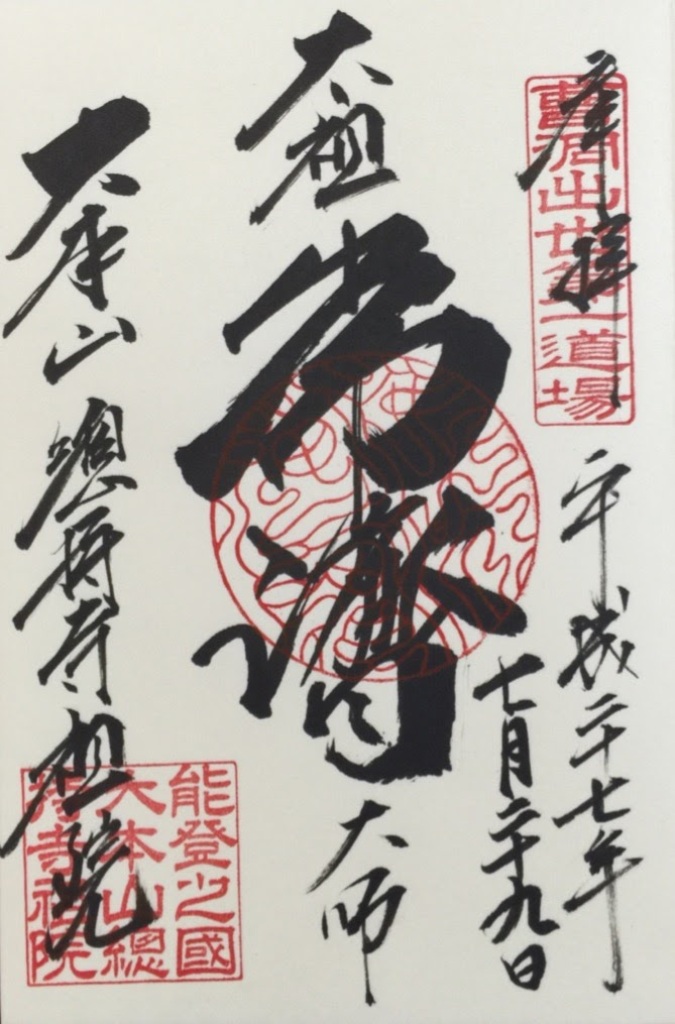 奉拝
曹洞出世第一道場
平成二十七年
七月二十九日
太祖常濟大師
大本山總持寺祖院
能登之國
大本山總
持寺祖院